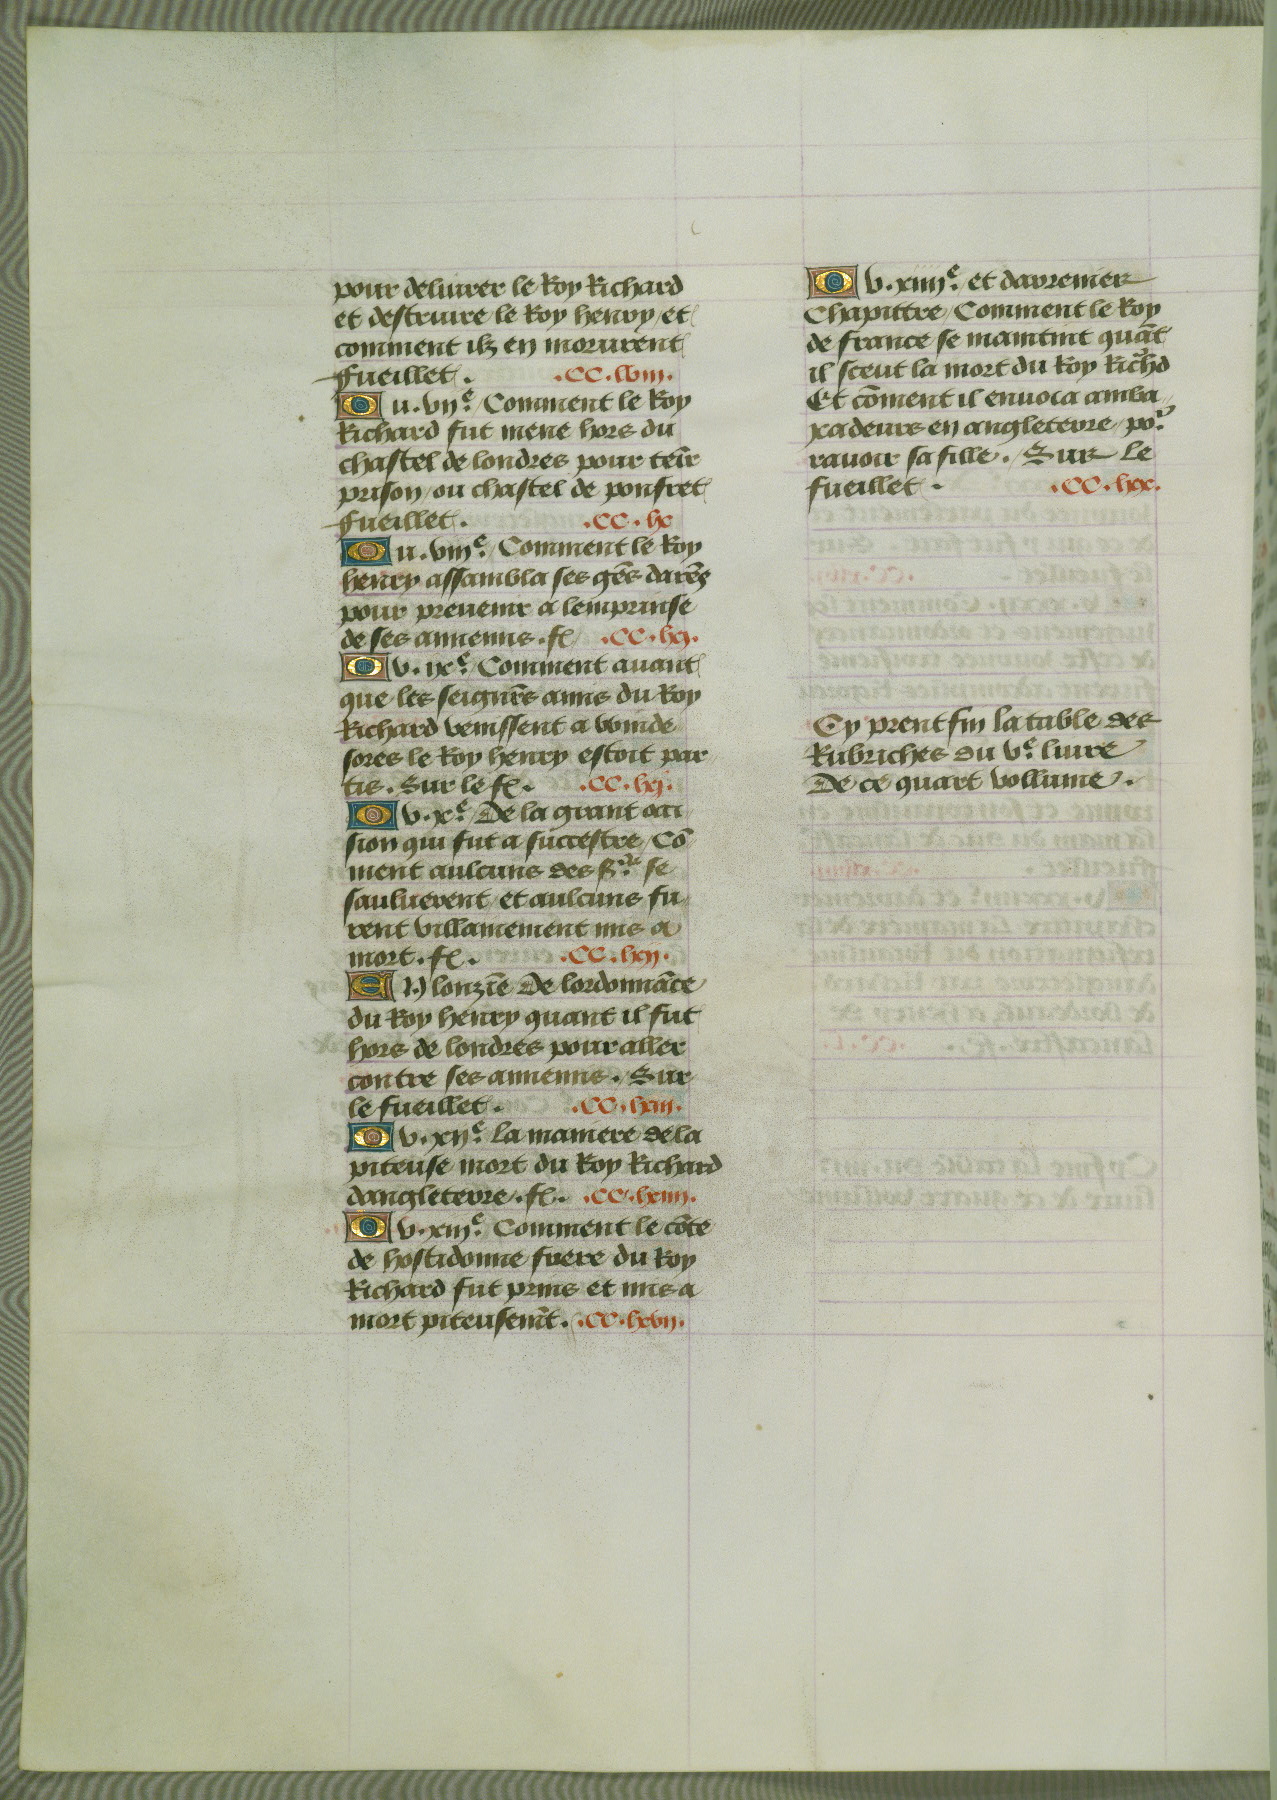 pour deliurer le Roy Richard
et destruire le Roy henry et
comment ilz en morurent
ffueillet. .CC.lviii.
Du .vije. Comment le Roy
Richard fut mene hors du
chastel de londres pour tenir
prison ou chastel de ponfret
ffueillet. .CC.lx
Du .viije. Comment le Roy
henry assambla ses gēs darēs
pour preuenir a lemprinse
de ses annemis. fe. .CC.lxj.
Du .ixe. Comment auant
que les seignrs amis du Roy
Richard venissent a vvinde
sores le Roy henry estoit par
tis. Sur le fe. .CC.lxj.
Du .xe. De la grant occi
sion qui fut a succestre Cō
ment aulcuns des Srs se
sauluerent et aulcuns fu
rent villainement mis a
mort. fe. .CC.lxij.
EN lonziē De lordonnāce
du Roy henry quant il fut
hors de londres pour aller
contre ses annemis. Sur
le fueillet. .CC.lxiii.
Du .xije. La maniere de la
piteuse mort du Roy Richard
dangleterre. fe. .CC.lxiiij.
Du .xiije. Comment le cōte
de hostidonne frere du Roy
Richard fut prins et mis a
mort piteusemēt. .CC.lxvij.
Du .xiiije. et darrenier
Chapittre Comment le Roy
de france se maintint quāt
il sceut la mort du Roy Richd
Et cōment il enuoia amba
xadeurs en angleterre por
rauoir sa fille. Sur le
fueillet. .CC.lxx.
Cy prent fin la table des
Rubriches du ve liure
De ce quart vollume.